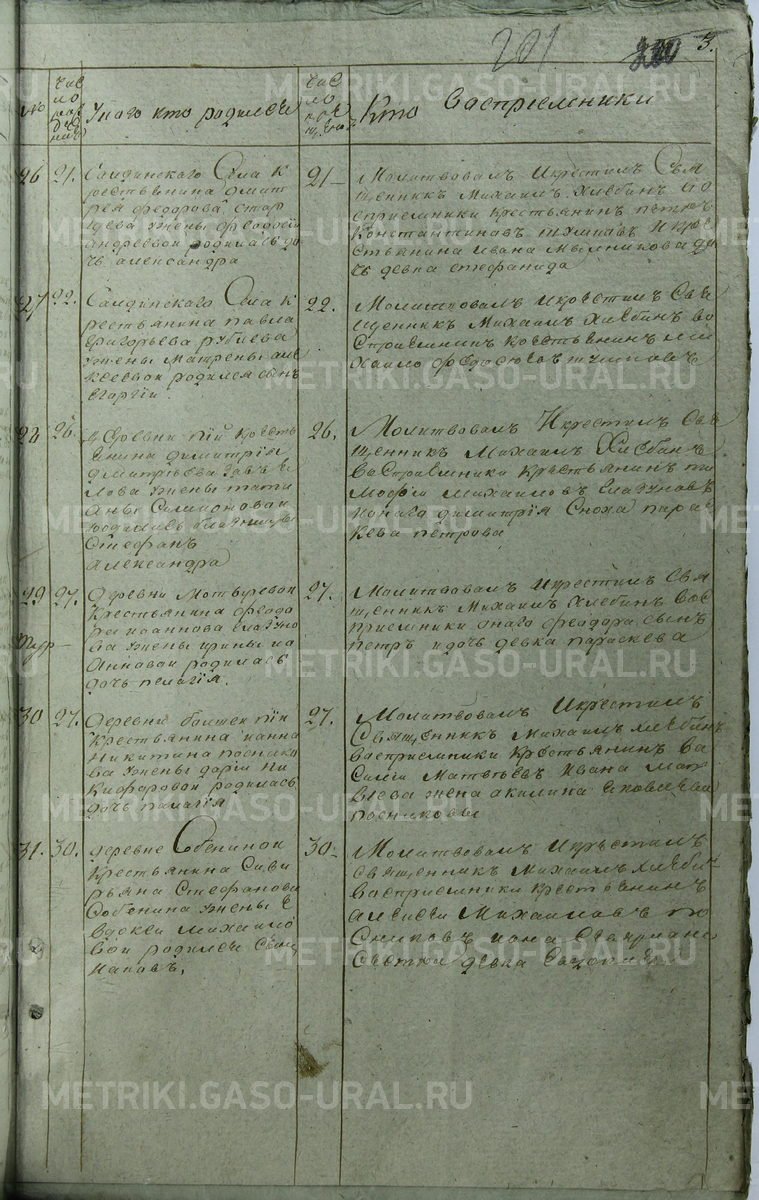 201 3.
№
Число рождения
У кого кто родился
Число крещения
Кто восприемники
26 21.
Салдинскаго Села к
рестьянина Димит
рея Федорова Стар
цева жены Феодосии
андреевой родилась до
чь александра
21
Молитвовалъ и крестилъ Свя
щенникъ Михаилъ Хлебинъ во
сприемники крестьянинъ петръ
константиновъ и кре
стьянина ивана мыльникова до
чь девка стефанида
27 22.
Салдинскаго Села к
рестьянина павла
григорьева
жены матрены але
ксеевой родился сынъ
георгий
22.
Молитвовалъ и крестилъ Свя
щенникъ Михаилъ Хлебинъ во
сприемникъ крестьянинъ ми
хаило
28 26.
крестья
янина димитрия
димитриева
жены тати
аны Симионовой
родились близницы
Стефанъ
александра
26.
Молитвовалъ и крестилъ Свя
щенникъ Михаилъ Хлебинъ
восприемники крестьянинъ ти
мофей михаиловъ глазуновъ
и онаго димитрия сноха пара
кева петрова
29 27.
Деревни Мотыревой
крестьянина феодо
ра иоаннова глазуно
ва жены ирины ио
анновой родилась
дочь пелагия.
27.
Молитвовалъ и крестилъ Свя
щенникъ михаилъ Хлебинъ вос
приемники онаго феодора сынъ
петръ и дочь девка параскева
30 27.
Деревни
крестьянина иоанна
никитина посника
ва жены дарии ни
кифоровой родилась
дочь палагия
27.
Молитвовалъ и крестилъ
Священникъ Михаилъ хлебинъ
восприемники крестьянинъ ва
силий матвеевъ ивана мат
веева жена акилина
посниковы
31. 30.
Деревне Собениной
крестьянина Сави
рьяна Стефанова
Собенина жены е
вдокеи михаило
вой родился Сынъ
30
Молитвовалъ и крестилъ
священникъ михаилъ хлебинъ
восприемники крестьянинъ
алексей михаиловъ по
сниковъ
девка
METRIKI.GASO-URAL.RU
METRIKI.GASO-URAL.RU
METRIKI.GASO-URAL.RU
METRIKI.GASO-URAL.RU